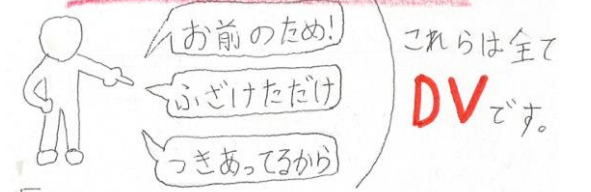 お前のため!
ふざけただけ
つきあってるから
これらは全て
DVです。